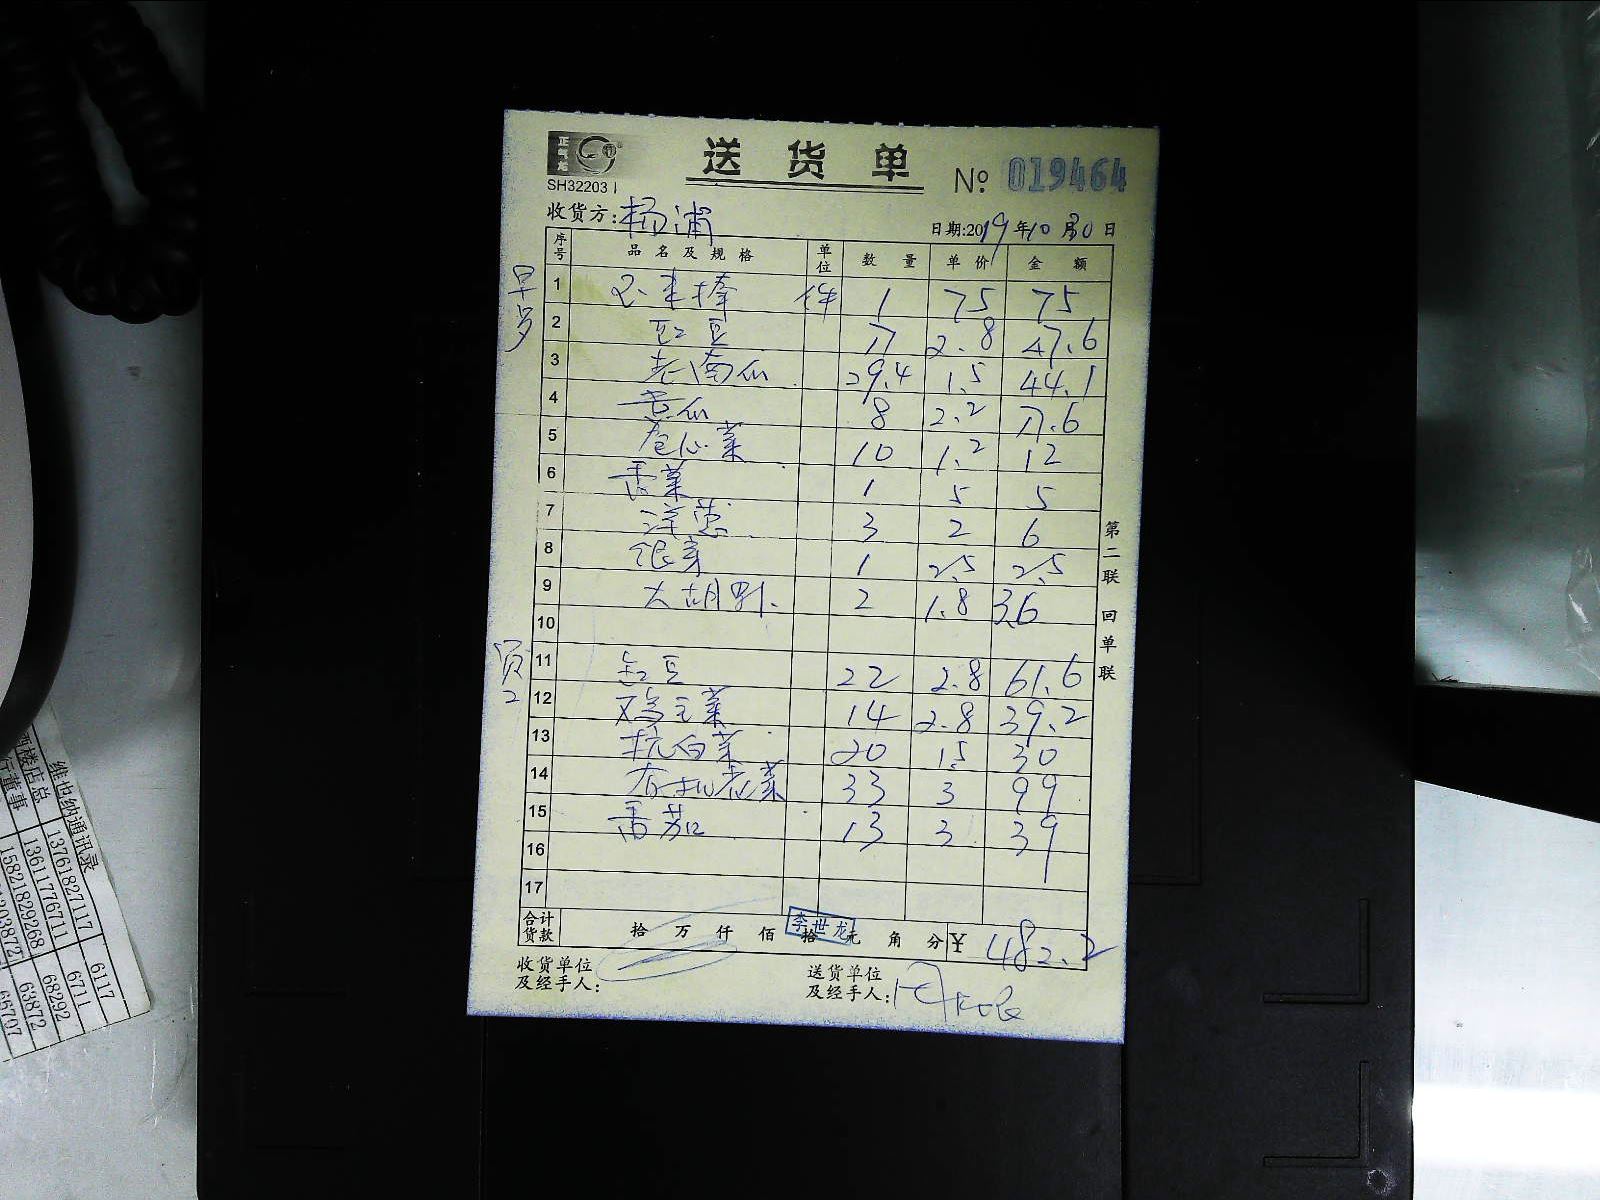 正章龙
送货单
SH32203
№ 019464
收货方:杨浦
日期:2019年10月30日
序号 品名及规格 单位 数量 单价 金额
早岁
1 玉米棒 件 1 75 75
2 豇豆 17 2.8 47.6
3 老南瓜 29.4 1.5 44.1
4 黄瓜 8 2.2 17.6
5 卷心菜 10 1.2 12
6 香菜 1 5 5
7 洋葱 3 2 6
8 银芽 1 2.5 2.5
9 大胡 2 1.8 3.6
10
员工
11 豇豆 22 2.8 61.6
12 鸡毛菜 14 2.8 39.2
13 杭白菜 20 1.5 30
14 有机花菜 33 3 99
15 番茄 13 3 39
16
17
合计货款 拾 万 仟 佰 拾 元 角 分 ¥ 482.2
李世龙
收货单位及经手人:
送货单位及经手人:
第二联 回单联
维也纳通讯录
13761827117 6117
酒楼店总 13611776711 6711
行董事 15821829268 68292
63872
66707